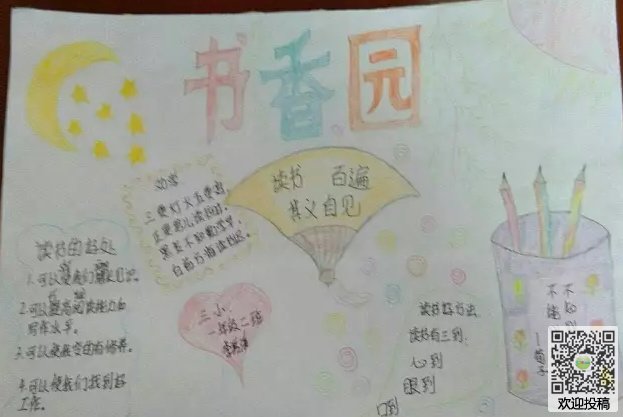 书香园
劝学
三更灯火五更起,
正是男儿读书时。
黑发不知勤学早,
白首方悔读书迟。
读书 百遍
其义自见
读书的好处
1.可以使我们增长见识。
2.可以提高阅读能力和
写作水平。
3.可以使我变的有修养。
4.可以使我们找到好
工作。
三小
一年级二班
读书好方法
读书有三到:
心到
眼到
口到
荀子
欢迎投稿